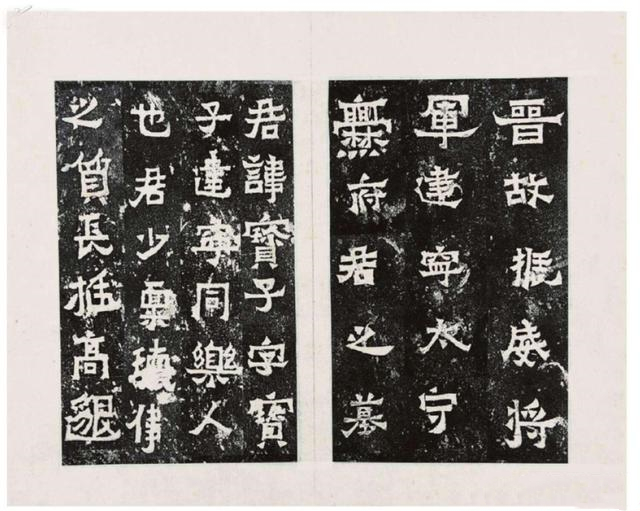 晉故振威將
軍建寧太守
爨府君之墓
君諱寶子字寶
子建寧同樂人
也君少稟瓌偉
之質長挺高邈